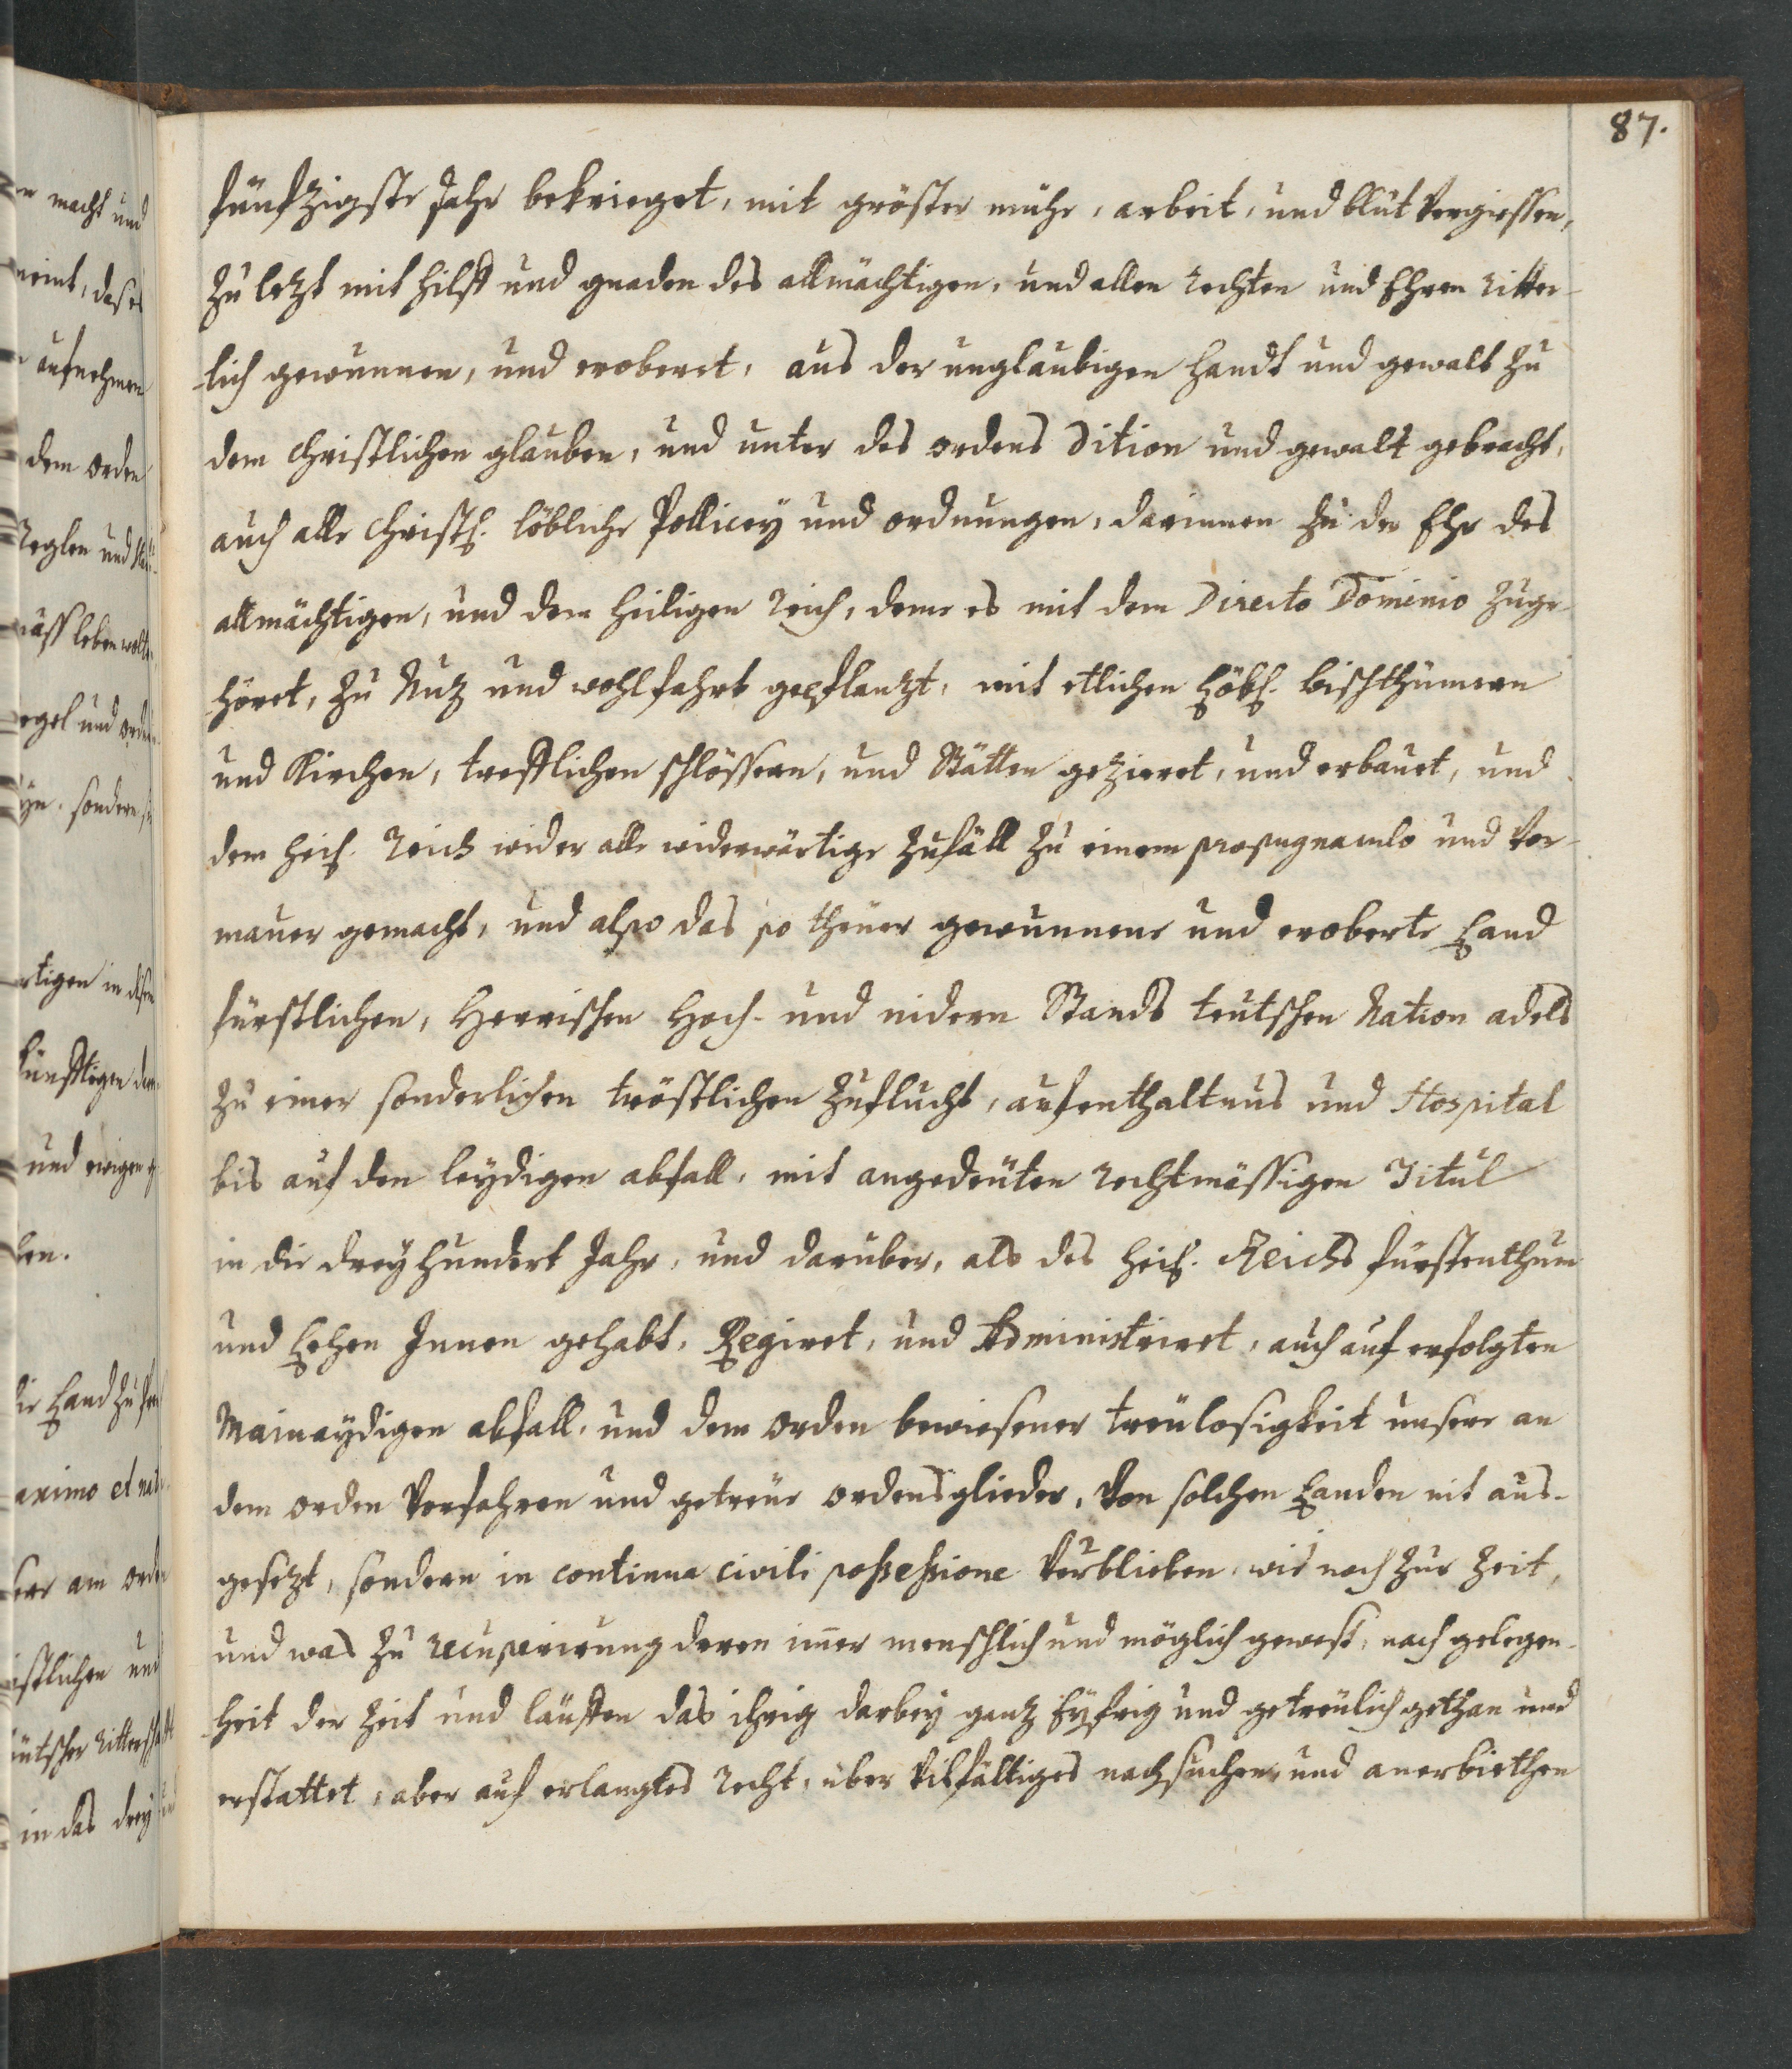 87.
fünfzigste Jahr bekrieget, mit gröster mühe, arbeit, und blut vergiessen,
zu letzt mit hilff und gnaden des allmächtigen, und allen rechten und Ehren ritter-
lich gewunnen, und eroberet, aus der unglaubigen handt und gewalt zu
dem christlichen glauben, und unter des ordens Dition und gewalt gebracht,
auch alle christl. löbliche Pollicey und ordnungen, darinnen zu der Ehr des
allmächtigen, und dem heiligen reich, deme es mit dem Directo Dominio zuge-
höret, zu Nuz und wohlfahrt gepflantzt, mit etlichen Löbl. bischthümern
und Kirchen, trefflichen schlössern, und Stätten gezieret, und erbauet, und
dem heil. reich wider alle widerwärtige zufäll zu einem propugnaculo und vor-
mauer gemacht, und also das so theuer gewunnene und eroberte Land
fürstlichen, Herrischen Hoch- und nidern Stands teutschen Nation adels
zu einer sonderlichen tröstlichen zuflucht, aufenthaltnus und Hospital
bis auf den leydigen abfall, mit angedeuten rechtmässigen Titul
in die dreyhundert Jahr, und darüber, als des heil. Reichs fürstenthum
und Lehen Innen gehabt, Regiret, und Administriret, auch auf erfolgten
Mainaydigen abfall, und dem orden bewiesener treulosigkeit unsere an
dem orden Vorfahren und getreue ordensglieder, von solchen Landen nit aus-
gesezt, sondern in continua civili possessione verblieben, wie noch zur Zeit,
und was zu recuperirung deren immer menschlich und möglich gewest, nach gelegen-
heit der Zeit und läufften das ihrig darbey ganz Eyfrig und getreulich gethan und
erstattet, aber auf erlangtes recht, über vilfältiges nachsuchen, und anerbiethen